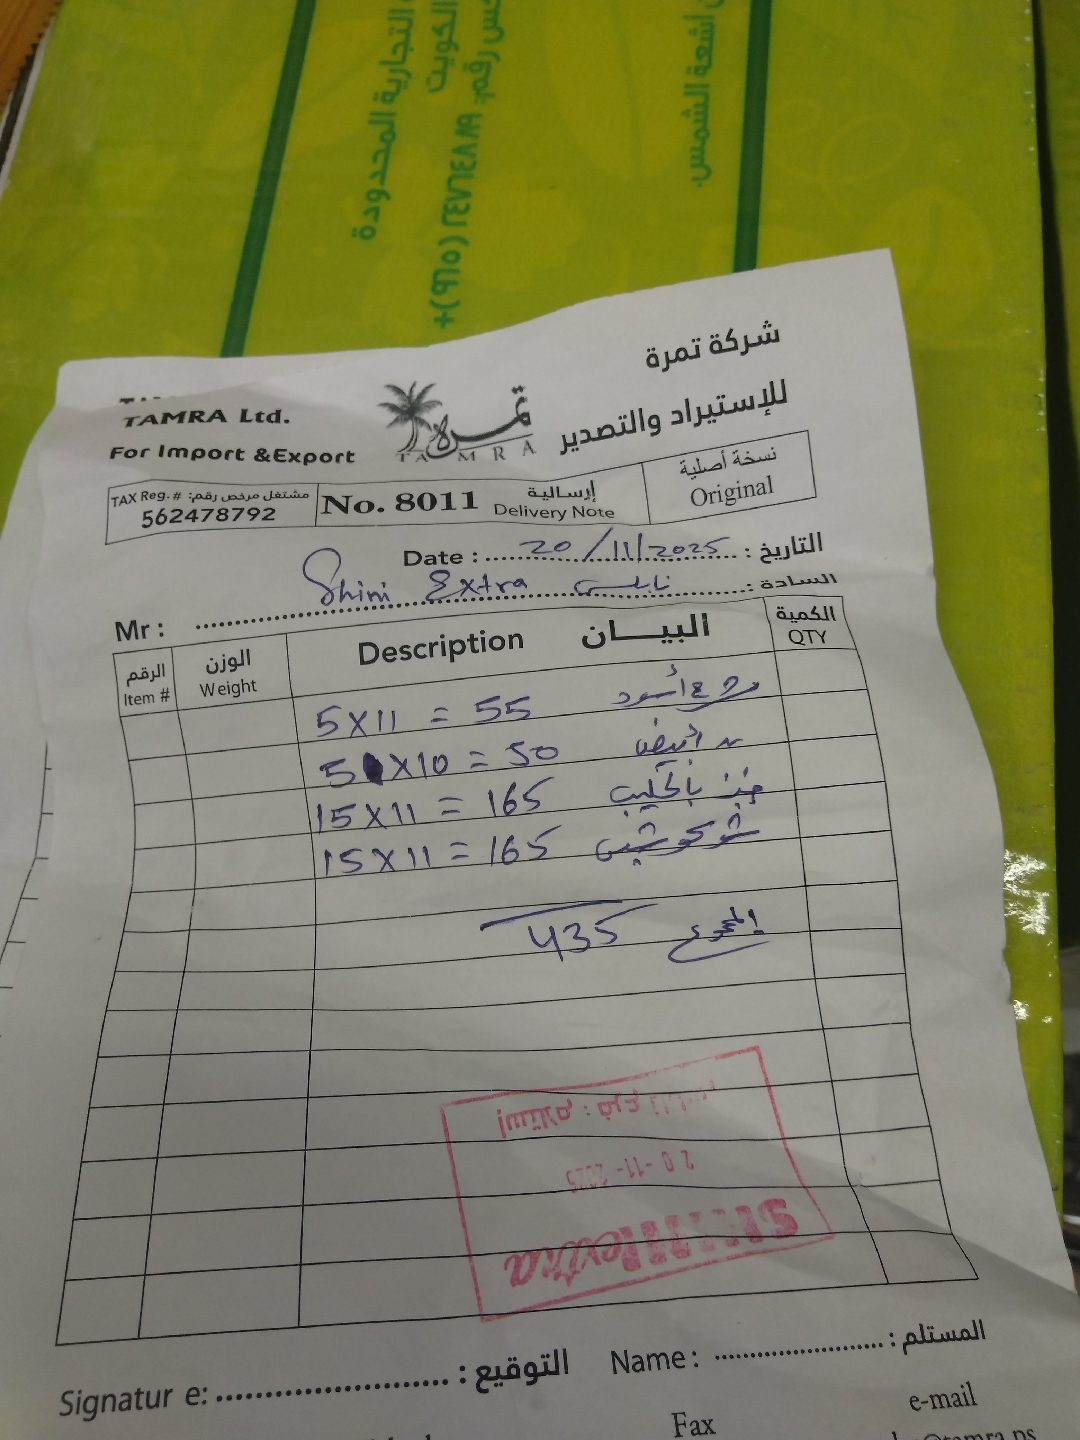 التجارية المحدودة
الكويت
+(٩٦٥) ٢٤٧٦٤٨٨٩
أشعة الشمس.
شركة تمرة
للإستيراد والتصدير
TAMRA Ltd.
For Import &Export
تمرة
TAMRA
TAX Reg. # مشتغل مرخص رقم:
562478792
No. 8011
إرسالية
Delivery Note
نسخة أصلية
Original
Date : 20/11/2025 التاريخ :
Mr : Shini Extra نابلس السادة :
الرقم الوزن Description البيـــان الكمية
Item # Weight QTY
5x11 = 55 أسود
5 x10 = 50 〃 أبيض
15x11 = 165 خبز بالحليب
15x11 = 165
435 المجموع
إستلام : فرع نابلس
20-11-2025
SHINI extra
Signatur e: التوقيع : Name : المستلم :
Fax
e-mail